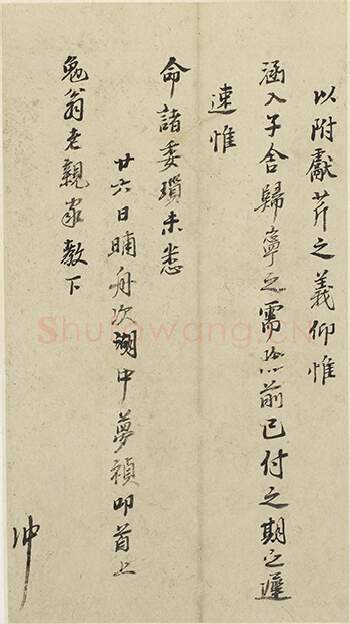 以附獻芹之義仰惟
涵入子舍歸寧之需前已付之期之遲
速惟
命諸委瑣未悉
廿六日晡舟次湖中夢禎叩首上
翁老親家教下
沖
Shufawang.CN